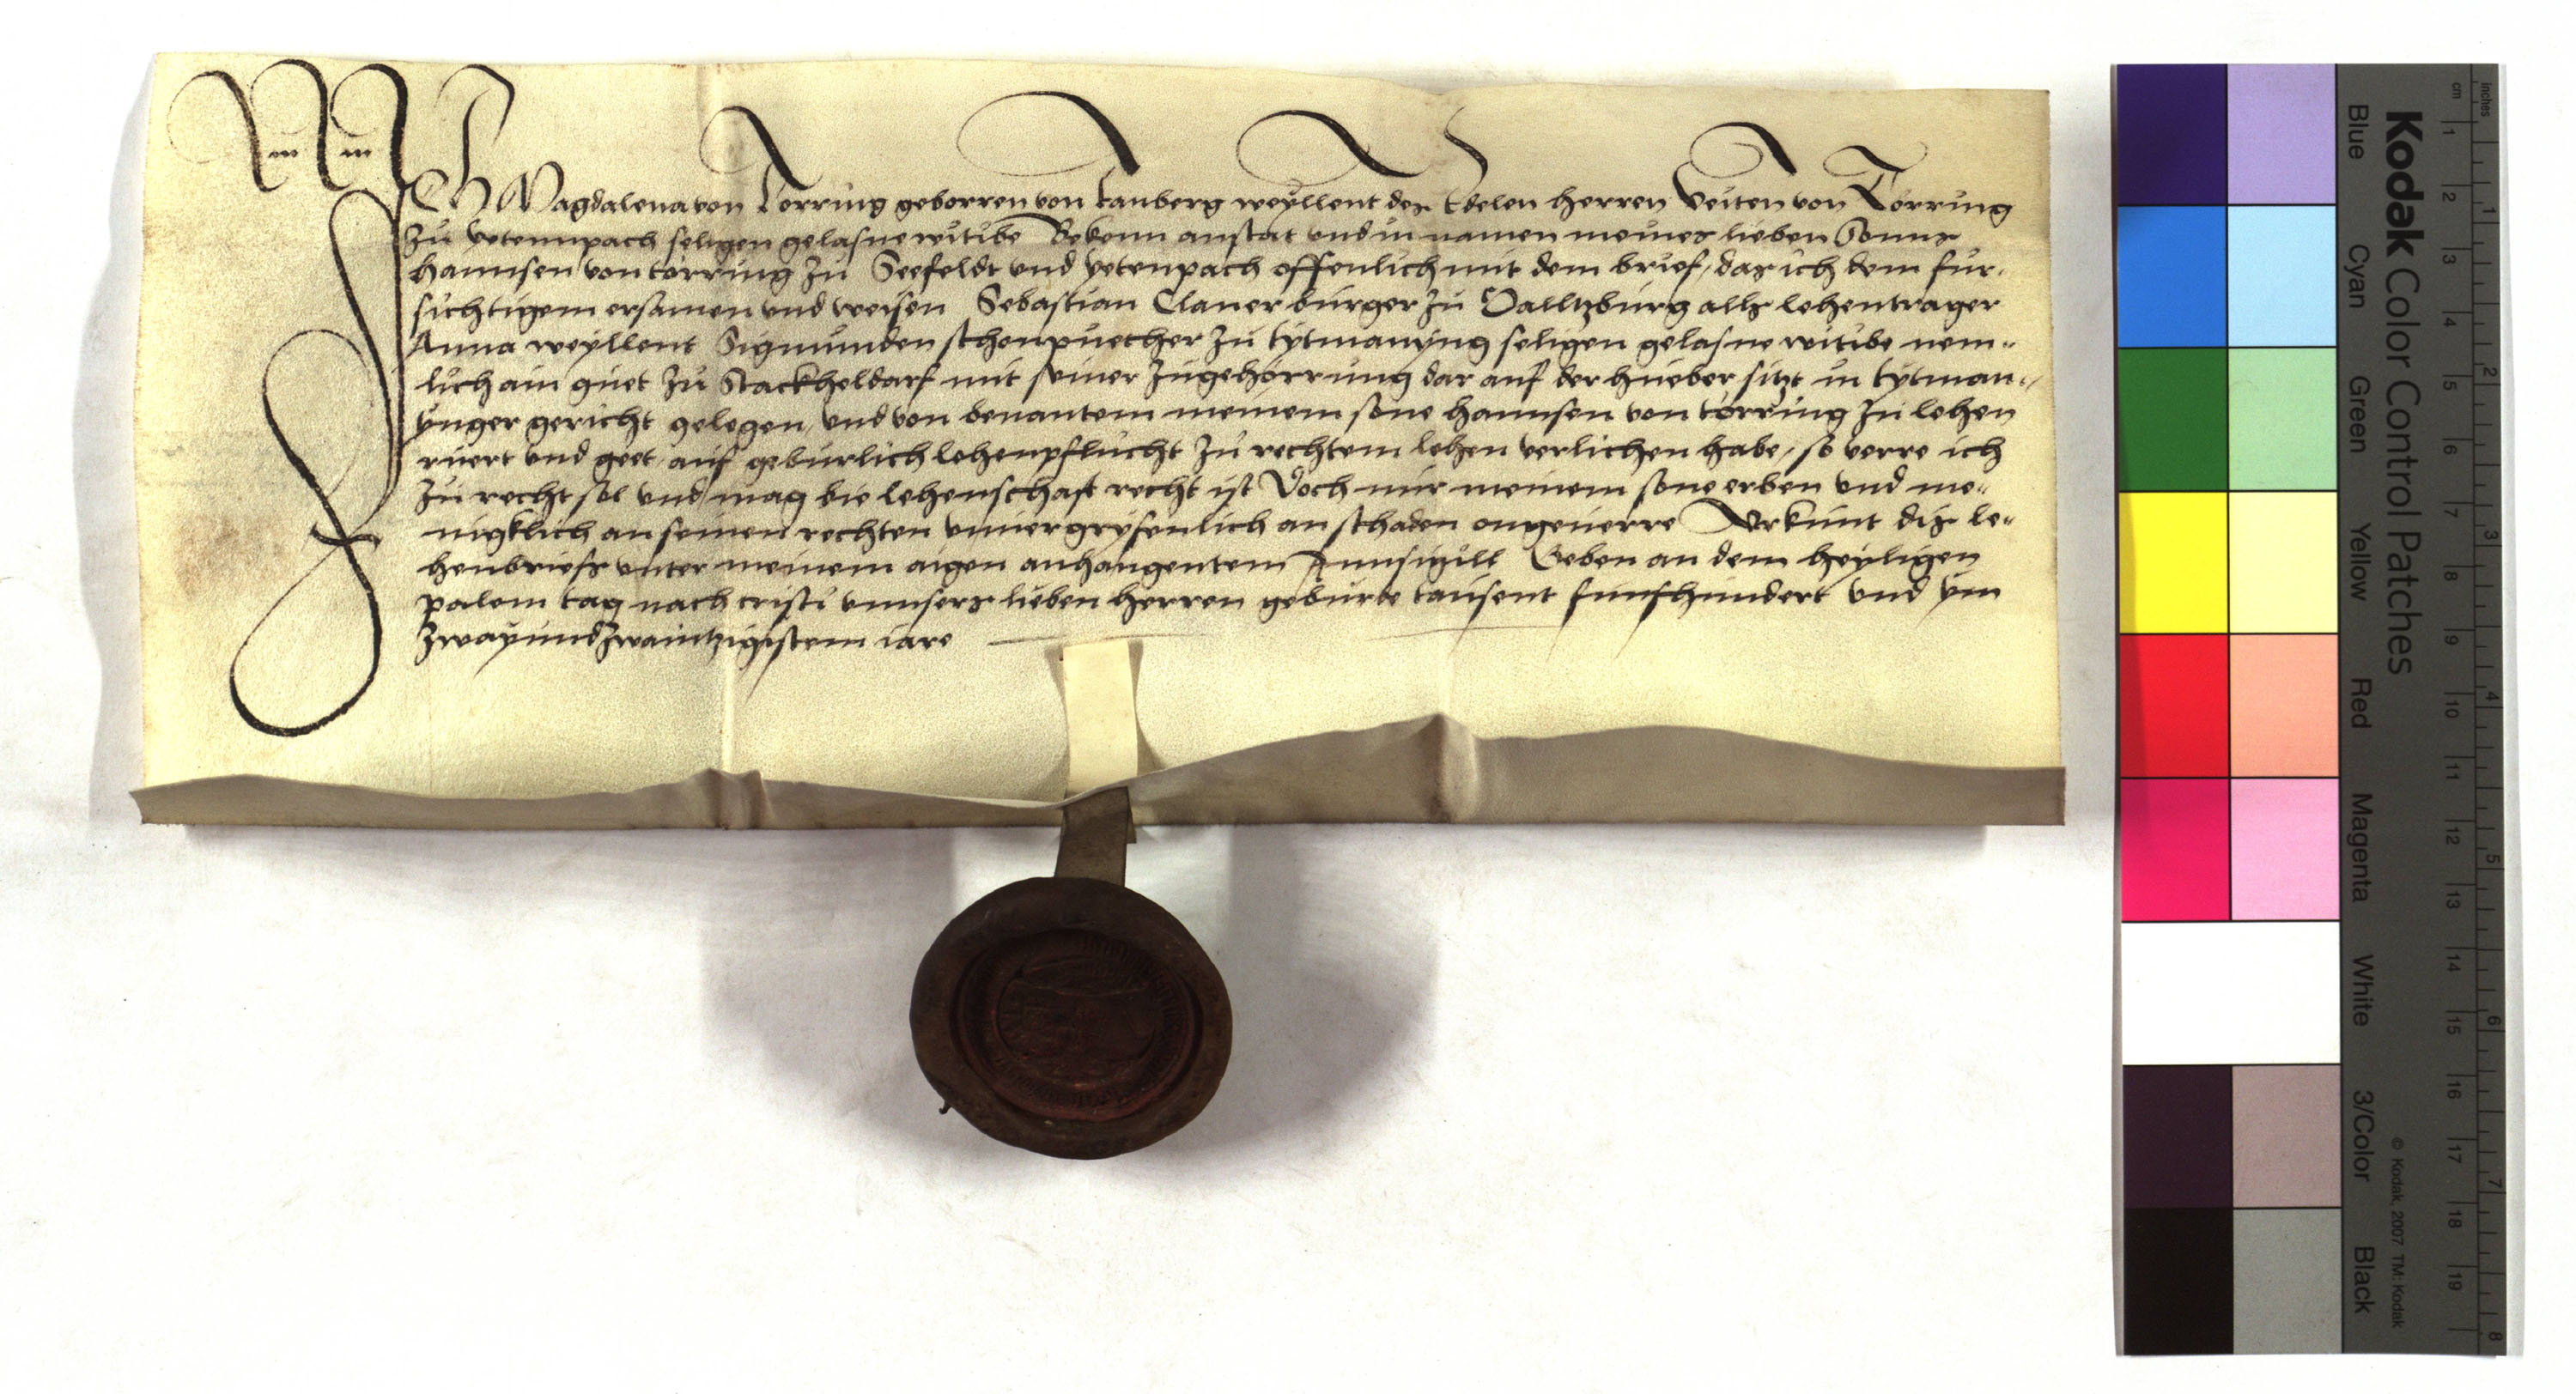 ICH Magdalena von Torring geborren von tanberg weyllent des Edelen herren Veiten von Törring
zu yetennpach seligen gelasne witibe Bekenn anstat und in namen meines lieben Sonns
hannsen von torring zu Seefeldt und yetenpach offenlich mit dem brief, das ich dem fur-
sichtigem ersamen und weisen Sebastian Claner burger zu Salltzburg alls lehentrager
Anna weyllent Sigmunden schonpuecher zu tytmanyng seligen gelasne witibe nem-
lich ain guet zu Stackheldarf mit seiner zugehorrung dar auf der hueber sitzt in tytman-
ynger gericht gelegen, und von benantem meinem sone hannsen von torring zu lehen
ruert und geet, auf geburlich lehenpflucht zu rechtem lehen verlichen habe, so verre ich
zu recht sol und mag die lehenschaft recht ist Doch mir meinem sone erben und me-
nigklich an seinen rechten unvergrysenlich an schaden ongeverre Urkunt dis le-
henbriefs unter meinem aigen anhangentem Innsigill Geben an dem heyligen
palem tag nach cristi unnsers lieben herren geburte tausent funfhundert und ym
zwayundzwaintzigistem iare
Kodak Color Control Patches
Blue Cyan Green Yellow Red Magenta White 3/Color Black
© Kodak, 2007 TM: Kodak
cm 1 2 3 4 5 6 7 8 9 10 11 12 13 14 15 16 17 18 19
inches 1 2 3 4 5 6 7 8